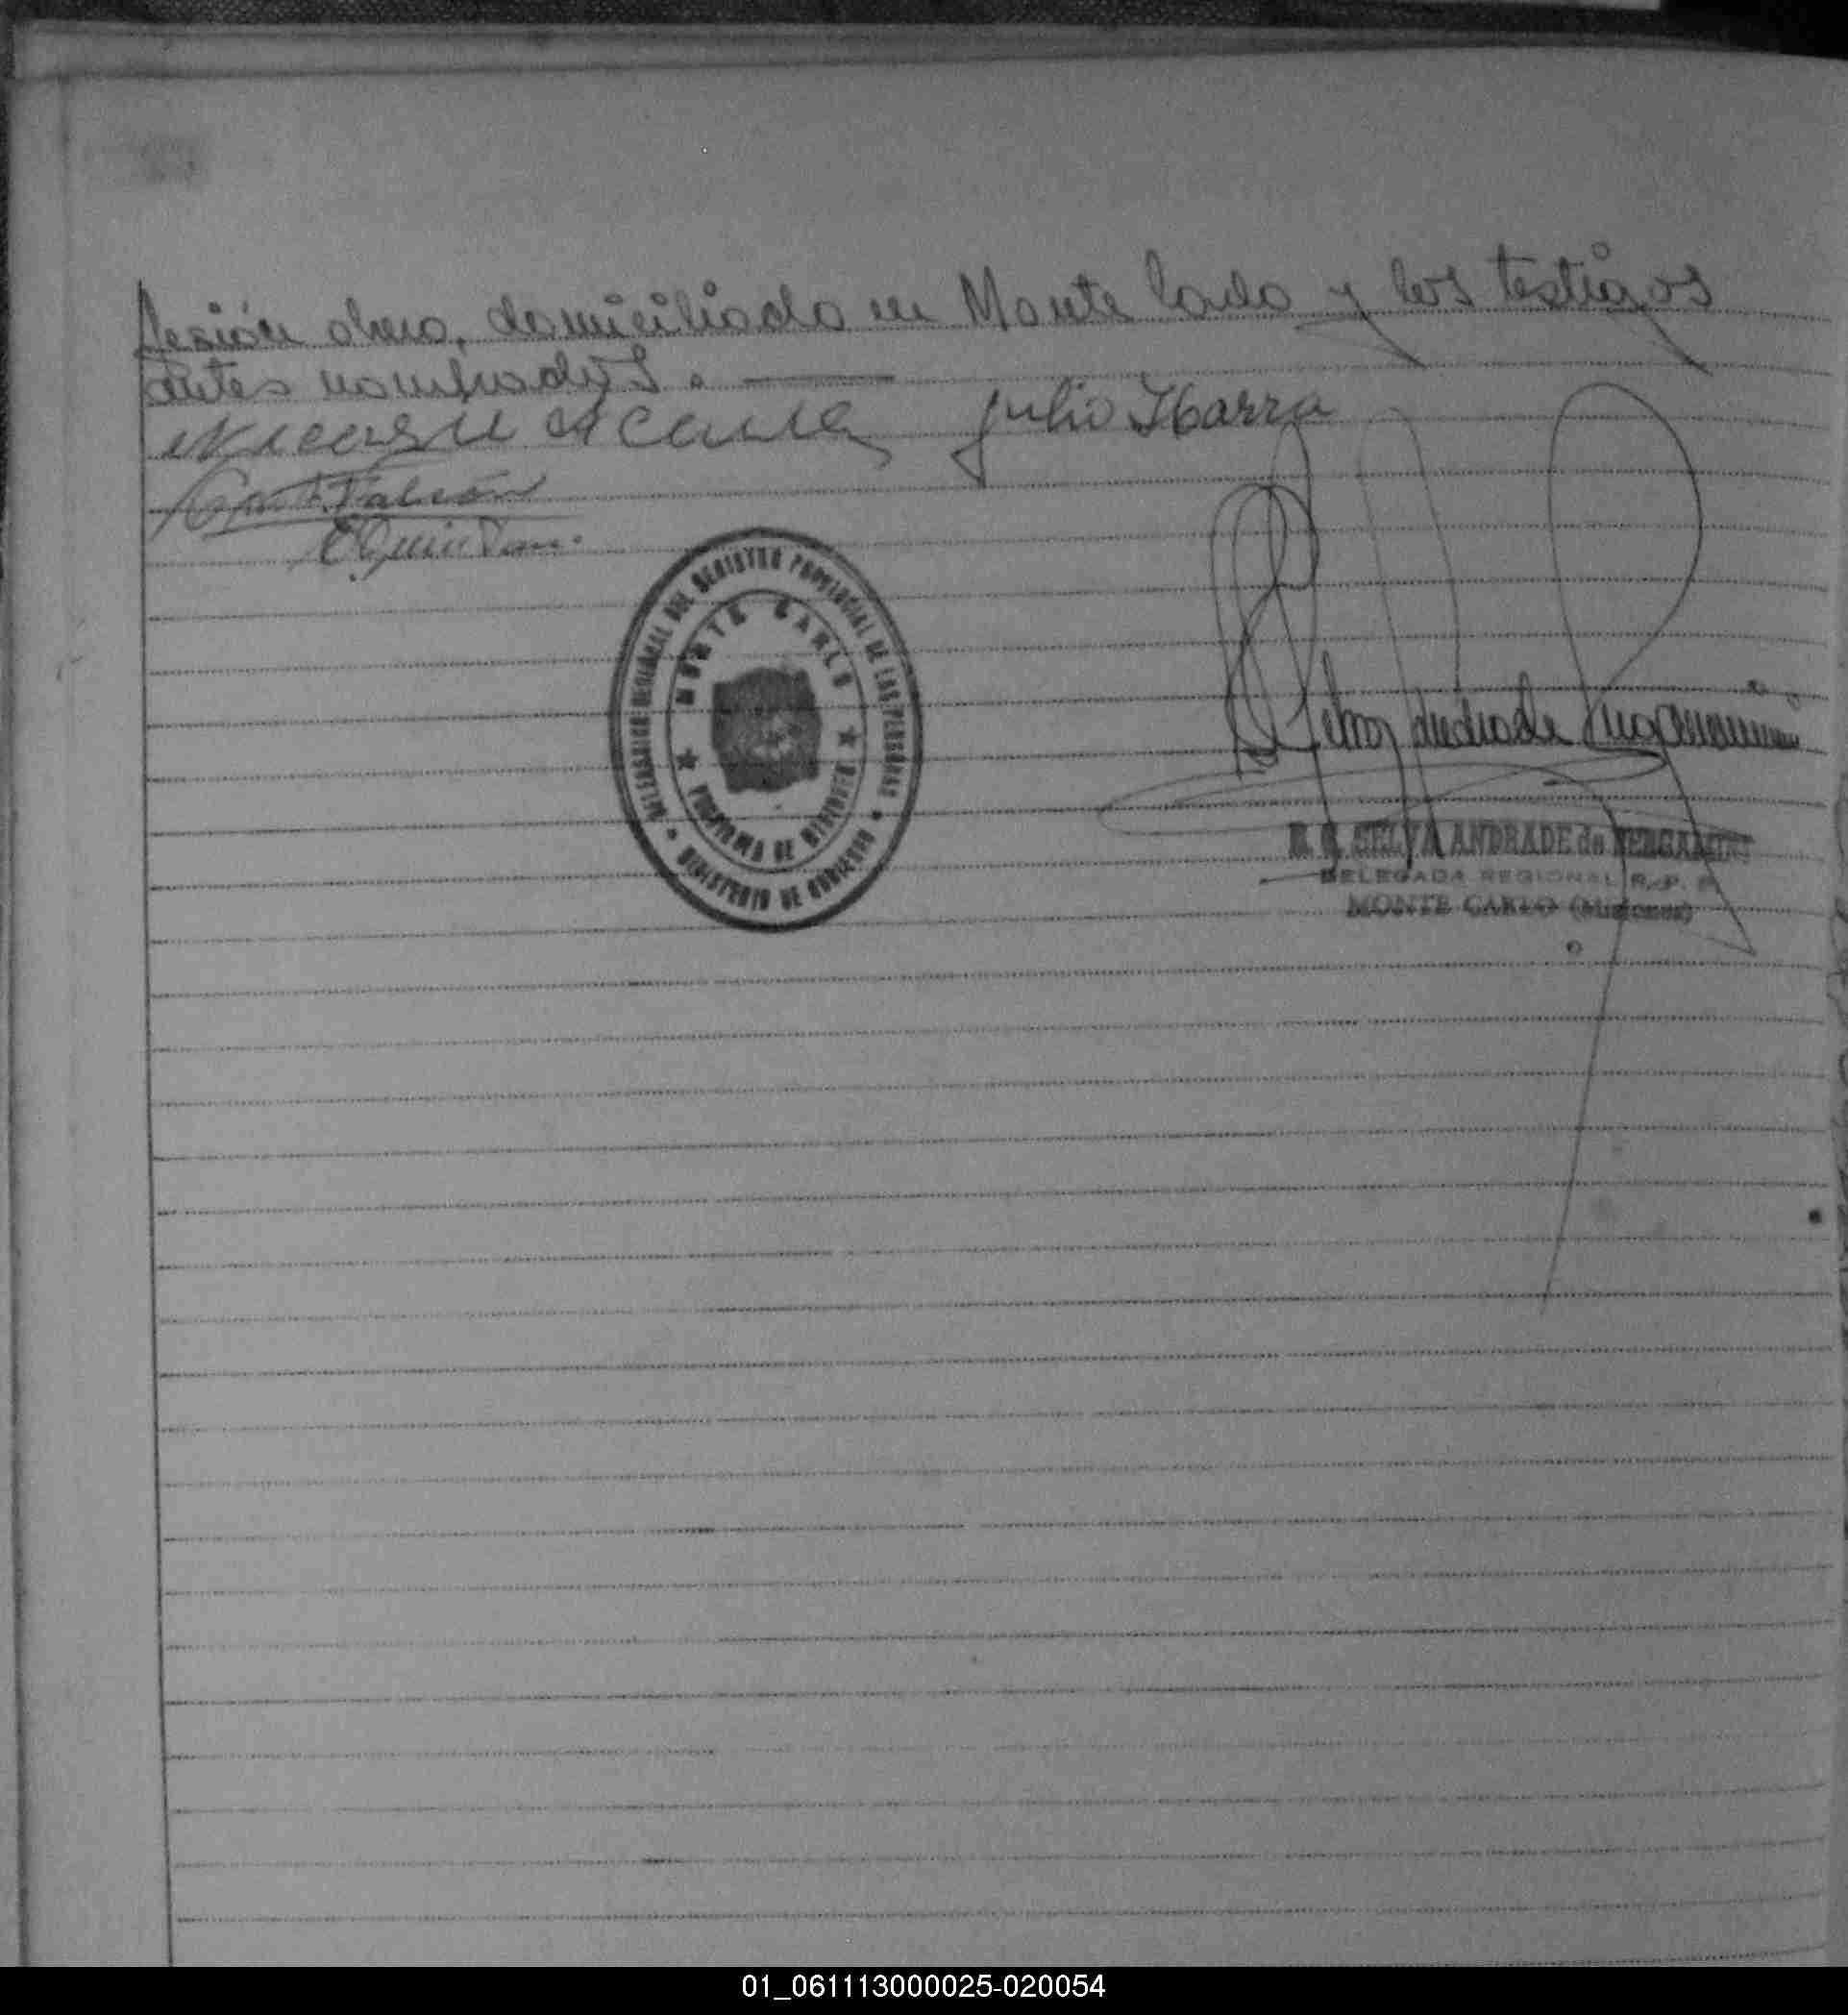 fesión obrero, domiciliado en Monte Carlo y los testigos
antes nombrados. —
Julio Ibarra
DELEGACION REGIONAL DEL REGISTRO PROVINCIAL DE LAS PERSONAS
MONTE CARLO
PROVINCIA DE MISIONES
MINISTERIO DE GOBIERNO
Selva Andrade
SELVA ANDRADE de BERGAMINI
DELEGADA REGIONAL R. P. P.
MONTE CARLO (Misiones)
01_061113000025-020054